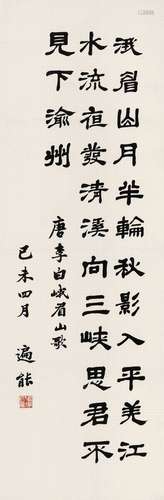 峨眉山月半輪秋影入平羌江
水流夜發清溪向三峽思君不
見下渝州
唐李白峨眉山歌
己未四月 遍能